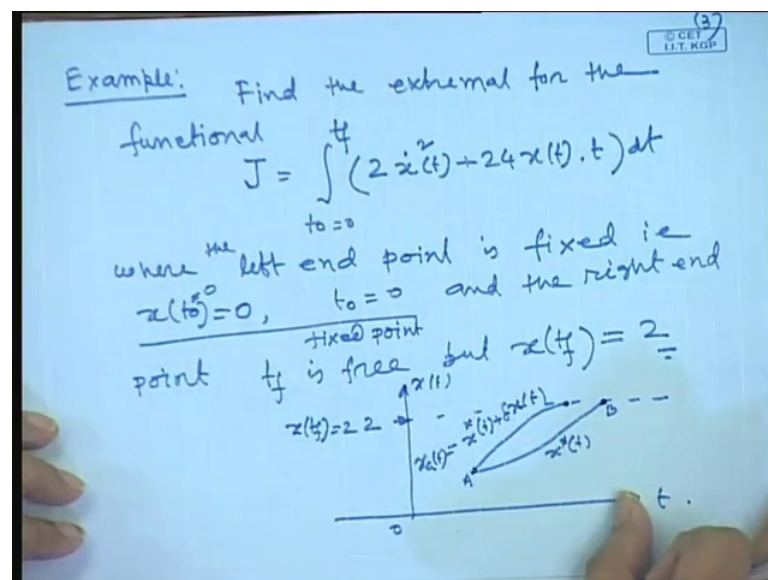 (3)
© CET
I.I.T. KGP
Example: Find the extremal for the
functional
J = ∫_{t0=0}^{tf} (2ẋ²(t) + 24x(t).t) dt
where the left end point is fixed ie
x(t0)=0, t0 = 0 and the right end
fixed point
point tf is free but x(tf) = 2
x(t)
x(tf)=2 2
xa(t)= x*(t)+δx(t)
B
x*(t)
A
t.
0